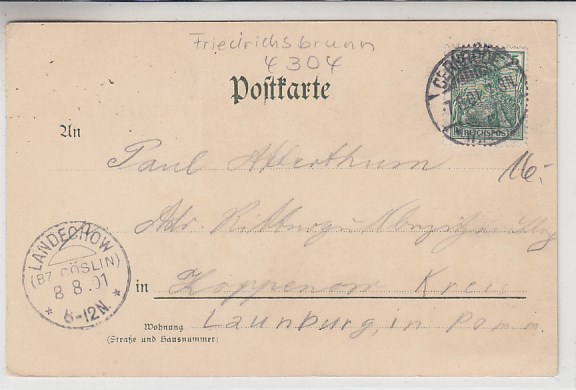 Friedrichsbrunn
4304
Postkarte
GERNRODE
REICHSPOST
An
Paul Alterthum
16.-
Adr. Rittergut
LANDECHOW
(BZ. CÖSLIN)
8 8.01
* 8-12N. *
in Koppenow Kreis
Launburg, in Pomm.
Wohnung
(Straße und Hausnummer)